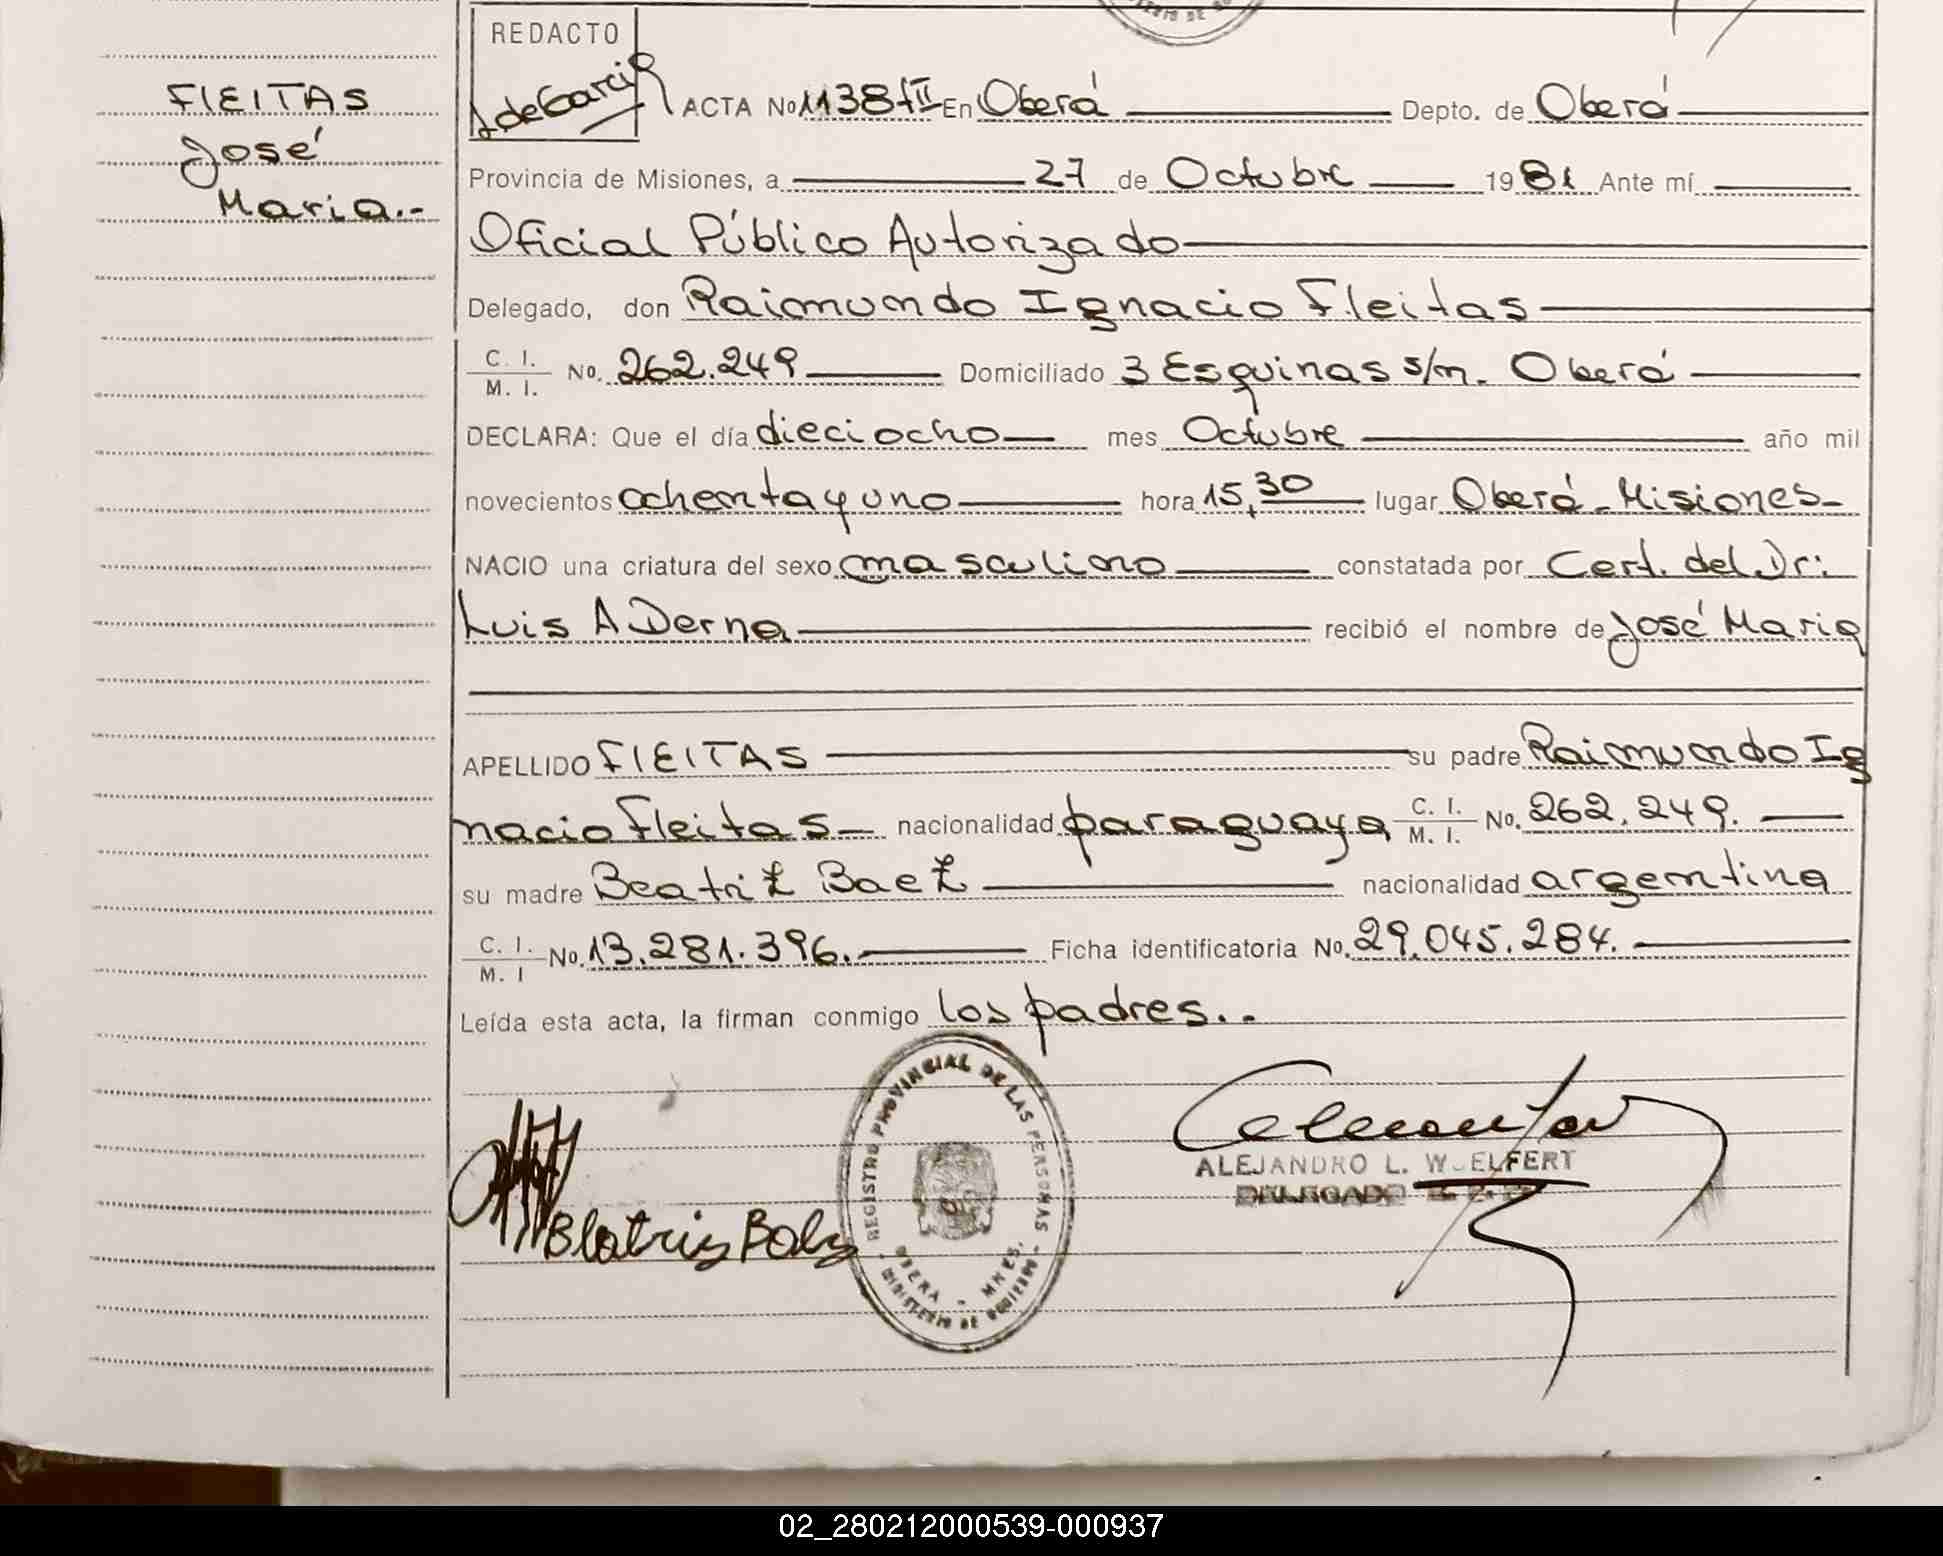 FLEITAS
José
Maria.-
REDACTO
ACTA No 1138 fII En Oberá Depto. de Oberá
Provincia de Misiones, a 27 de Octubre 1981 Ante mí
Oficial Público Autorizado
Delegado, don Raimundo Ignacio Fleitas
C. I. M. I. No. 262.249 Domiciliado 3 Esquinas s/n. Oberá
DECLARA: Que el día dieciocho mes Octubre año mil
novecientos ochenta y uno hora 15,30 lugar Oberá - Misiones-
NACIO una criatura del sexo masculino constatada por Cert. del Dr:
Luis A Derna recibió el nombre de José Maria
APELLIDO FLEITAS su padre Raimundo Ig
nacio Fleitas- nacionalidad paraguaya C. I. M. I. No. 262.249.
su madre Beatriz Baez nacionalidad argentina
C. I. M. I No. 13.281.396. Ficha identificatoria No. 29.045.284.
Leída esta acta, la firman conmigo los padres..
REGISTRO PROVINCIAL DE LAS PERSONAS
OBERA - MNES.
MINISTERIO DE GOBIERNO
Beatriz Baez
ALEJANDRO L. WOELFERT
DELEGADO
02_280212000539-000937